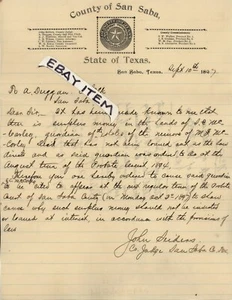 County of San Saba,
State of Texas.
San Saba, Texas, Sept 10th 1897
EBAY ITEM
To A. Duggan
San Saba
Dear Sir It has been made known to me that
there is surplus money in the hands of
guardian of estates of the minors of
dec'd that has not been loaned out as the law
directs and no said guardian was ordered to do at the
August term of the Probate Court, 1894.
Therefore you are hereby ordered to cause said guardian
to be cited to appear at the next regular term of the Probate
Court of San Saba County (on Monday Oct 1897) to show
cause why such surplus money should not be invested
or loaned at interest, in accordance with the provisions of
law
John
Co. Judge San Saba Co. Tex